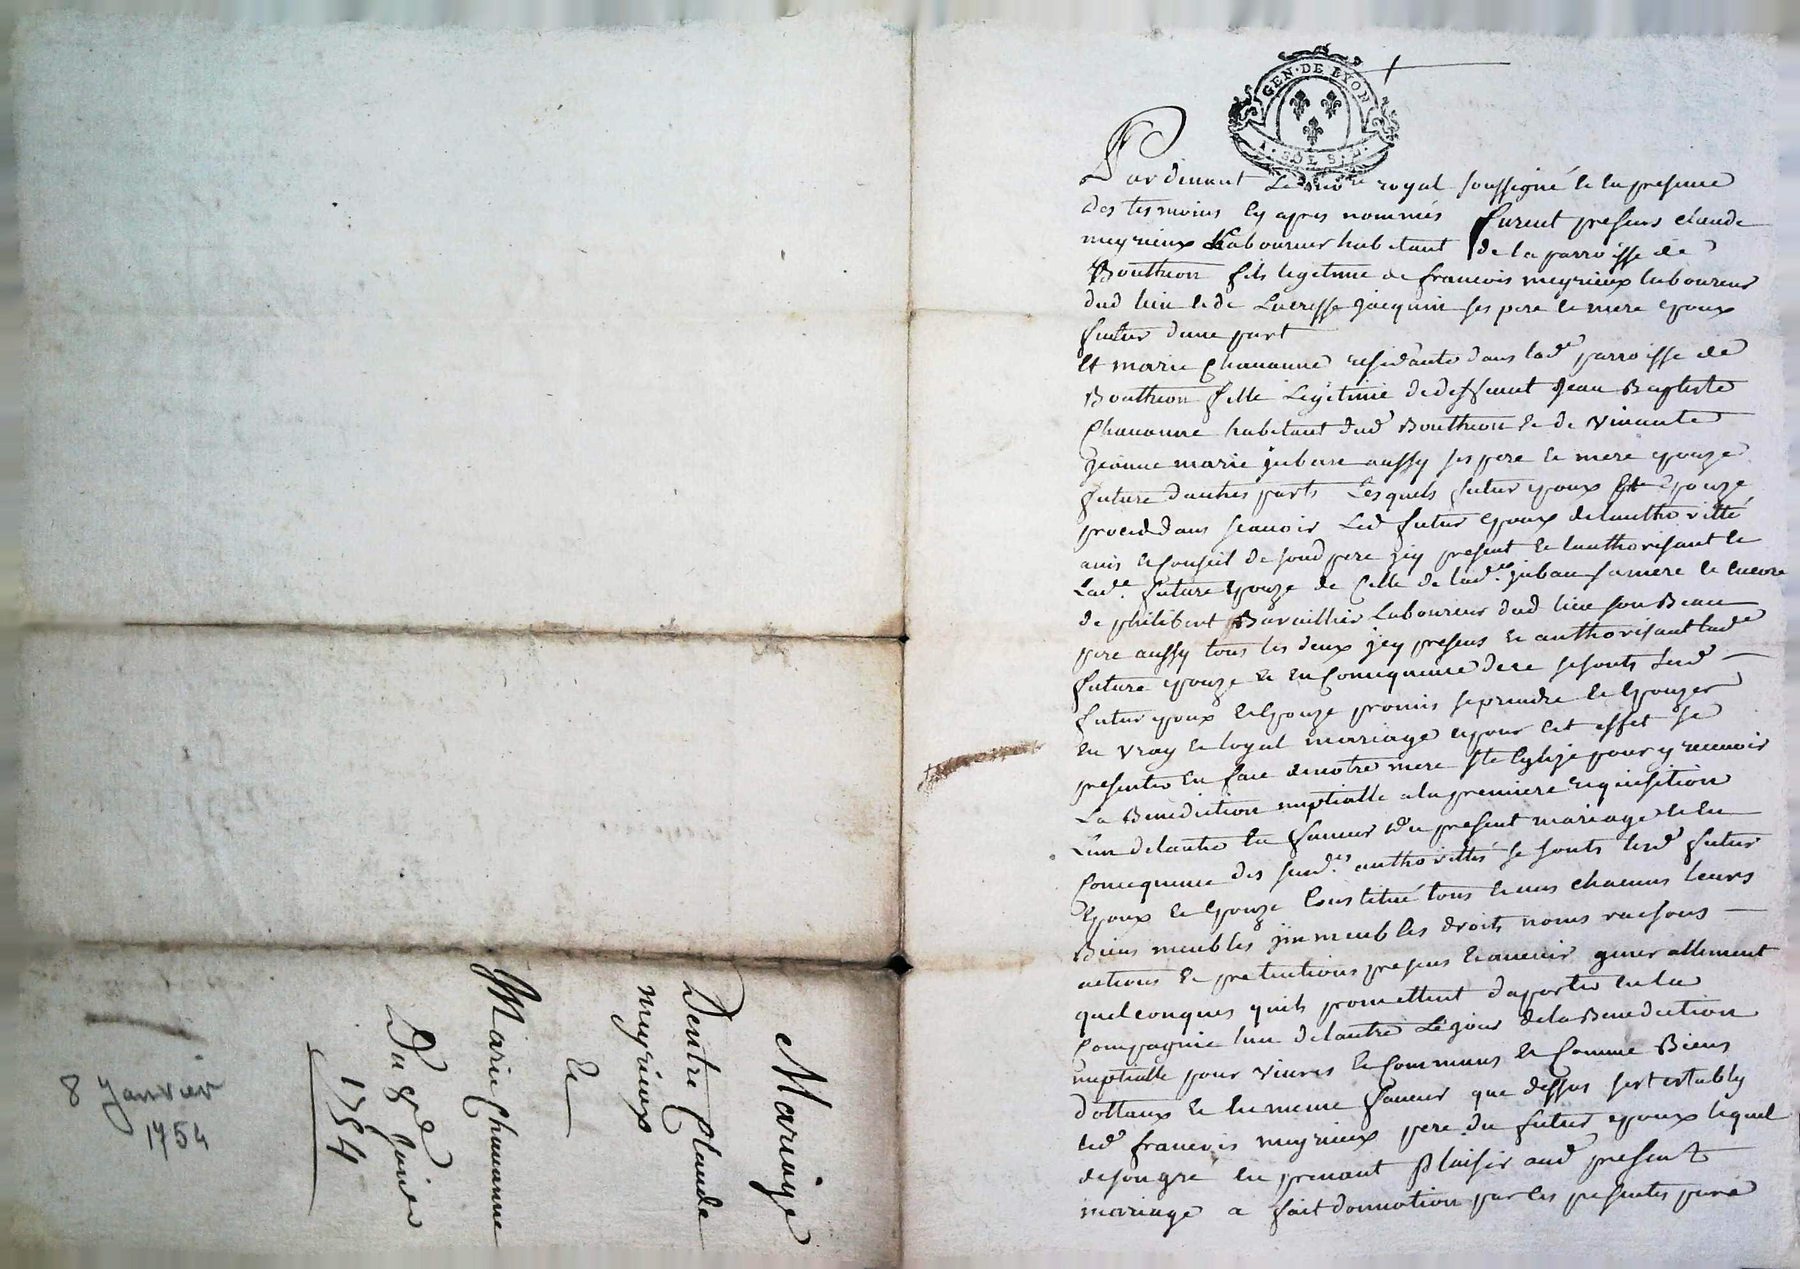 GEN·DE LYON
Pardevant Le no.re royal soussigné & en presence
des tesmoins cy apres nommés furent presens claude
meyrieux Laboureur habitant de la parroisse de
Bouthion fils legitime de francois meyrieux laboureur
dud lieu & de Lucresse Jacquin ses pere & mere epoux
futur dune part
Et marie Chauanne residante dans lad.e parroisse de
Bouthion fille Legitime de deffunt Jean Baptiste
Chauanne habitant dud Bouthion & de viuante
Jeanne marie juban aussy ses pere & mere epouze
future dautres parts Lesquels futur epoux & epouze
proceddans scauoir Led futur epoux de lauthoritté
auis & conseil de sond pere jcy present & lauthorisant &
Lad.e future epouze de Celle de lad.e juban sa mere & encore
de philibert Bavaillier Laboureur dud lieu son Beau
pere aussy tous les deux jcy presens & authorisant lad.e
future epouze & en Consequence de ce se sonts Lesd
futur epoux & Epouze promis se prendre & Epouzer
en vray & loyal mariage & pour cet effet se
presenter en face de notre mere Ste Eglize pour y receuoir
La Benediction nuptialle a la premiere requisition
Lun de lautre En faueur du present mariage & en
Consequence des susd.es authorittés se sonts lesd futur
Epoux & Epouze Constitué tous & uns chacuns leurs
Biens meubles jmmeubles droits noms raisons
actions & pretentions presens & auenir generallement
quelconques quils promettent daporter en la
Compagnie lun de lautre Le jour de la Benediction
nuptialle pour viures & Communs & Comme Biens
dottaux & en meme faueur que dessus sest estably
led francois meyrieux pere du futur epoux lequel
de son gré en prenant plaisir aud present
mariage a fait donnation par les presentes pure
Mariage
Dentre Claude
meyrieux
&
Marie Chauanne
Du 8e Janier
1754
8 Janvier
1754